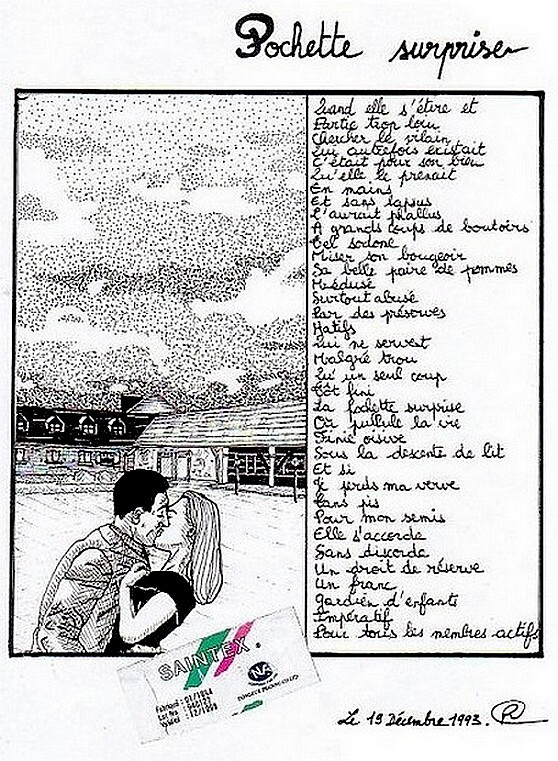 Pochette surprise
Quand elle s'étire et
Partie trop loin
Chercher le vilain
Qui autrefois existait
C'était pour son bien
Qu'elle le prenait
En mains
Et sans lapsus
L'aurait phallus
A grands coups de boutoirs
Tel sodome
Miser son bougeoir
Sa belle paire de pommes
Méduse
Surtout abusé
Par des préserves
Hatifs
Qui ne servent
Malgré trou
Qu'un seul coup
Tôt fini
La pochette surprise
Où pullule la vie
Finie oisive
Sous la descente de lit
Et si
Je perds ma verve
Tans pis
Pour mon semis
Elle s'accorde
Sans discorde
Un droit de réserve
Un franc
Gardien d'enfants
Impératif
Pour tous les membres actifs
SAINTEX
NA
Le 19 Décembre 1993.